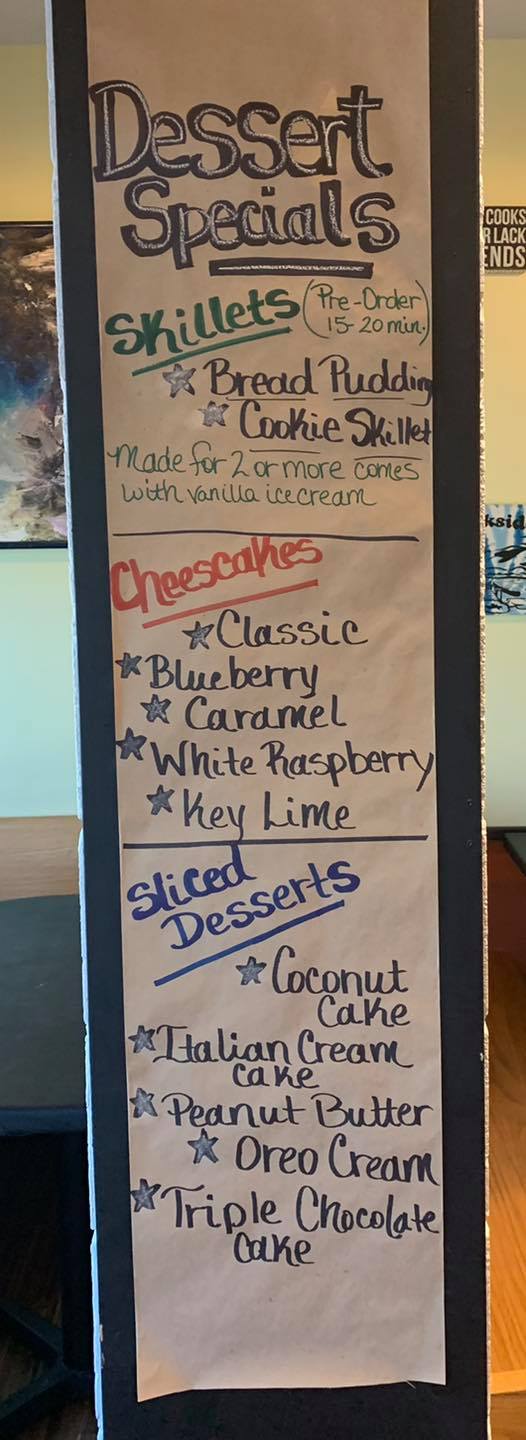 Dessert
Specials
Skillets (Pre-Order
15-20 min.)
Bread Pudding
Cookie Skillet
Made for 2 or more comes
with vanilla icecream
Cheescakes
Classic
Blueberry
Caramel
White Raspberry
Key Lime
Sliced
Desserts
Coconut
Cake
Italian Cream
cake
Peanut Butter
Oreo Cream
Triple Chocolate
Cake
COOKS
R LACK
ENDS